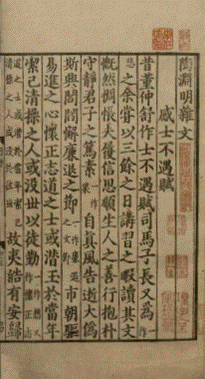 陶淵明雜文
感士不遇賦
昔董仲舒作士不遇賦司馬子長又為作
悲之余嘗以三餘之日講習之暇讀其文
慨然惆悵夫履信思順生人之善行抱朴
守靜君子之篤素自真風告逝大偽
斯興閭閻懈廉退之節市朝驅
易進之心懷正志道之士或潛玉於當年
潔己清操之人或沒世以徒勤
故夷皓有安歸